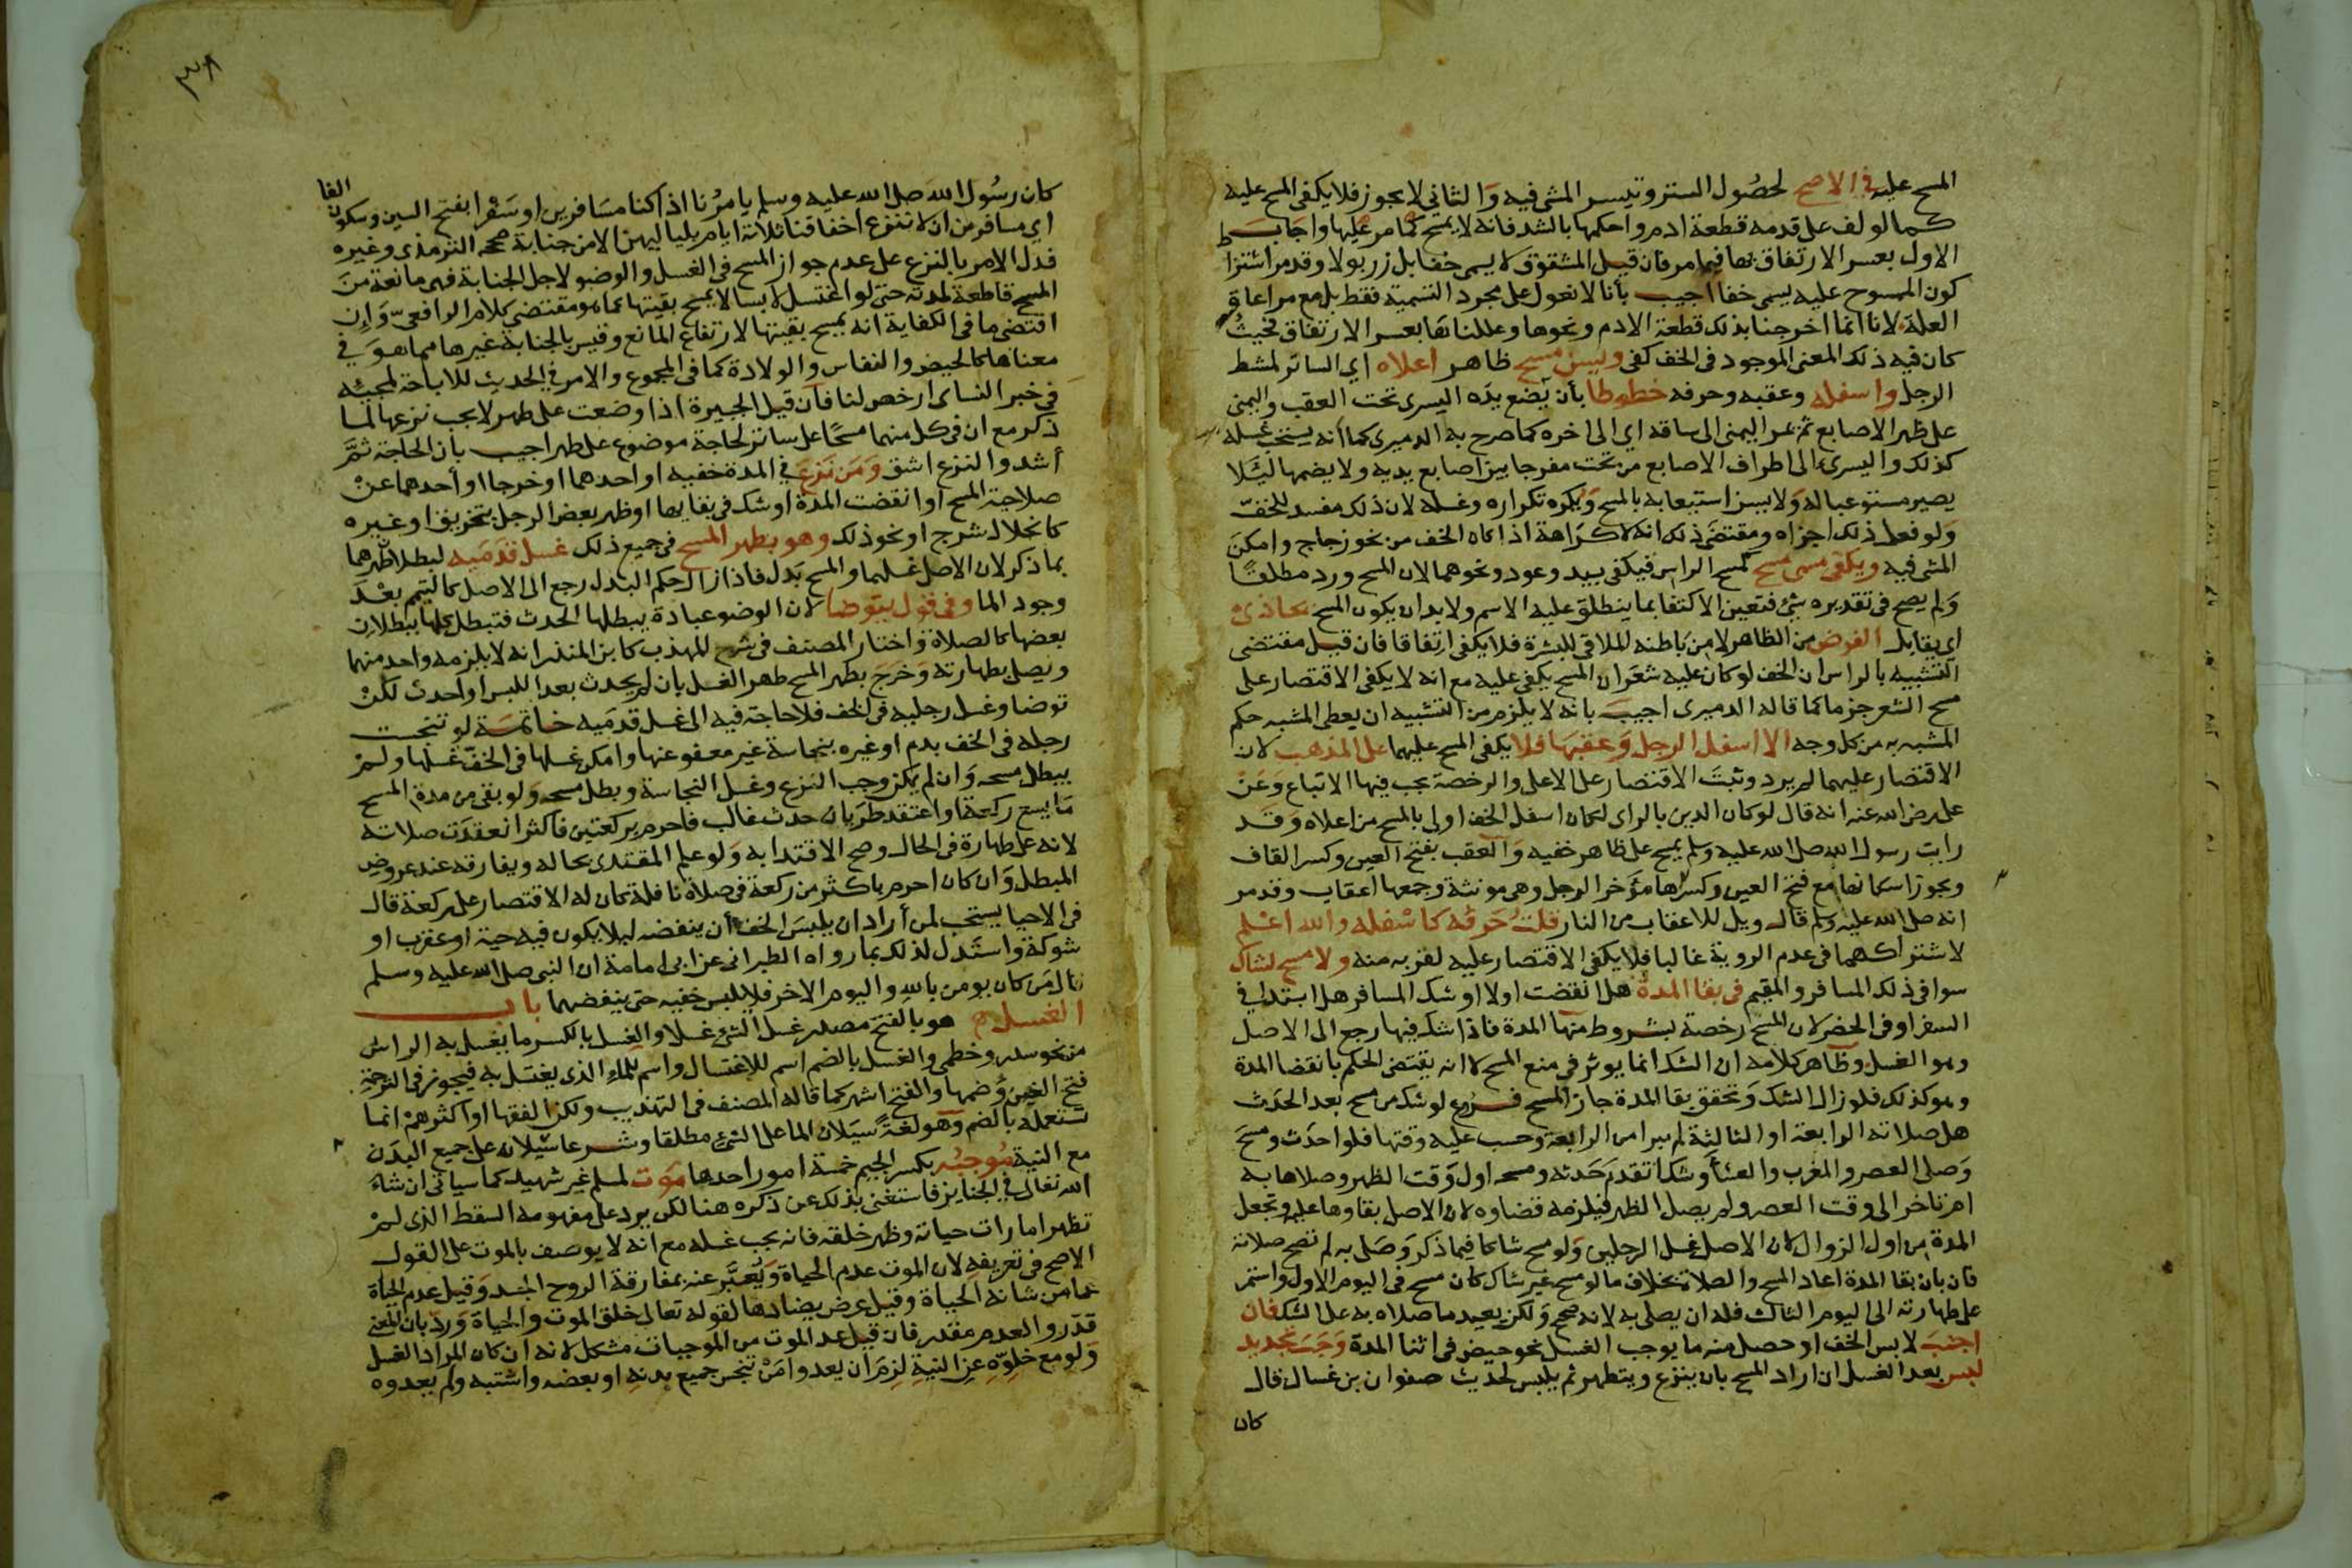 المسح عليه في الاصح لحصُول الستر وتيسر المشي فيه وَالثاني لا يجوز فلا يكفي المسح عليه
كما لو لف على قدمه قطعة ادم واحكمها بالشد فانه لا يمسح كما مر عليها واجاب
الاول بعسر الارتفاق بها فيما مر فان قيل المشقوق لا يسمى خفا بل زربولا وقد مر اشتراط
كون الممسوح عليه يسمى خفا اجيب بأنا لا نعول على مجرد التسمية فقط بل مع مراعاة
العلة لانا انما اخرجنا بذلك قطعة الادم ونحوها وعللناها بعسر الارتفاق فحيثُ
كان فيه ذلك المعنى الموجود في الخف كفى ويسن مسح ظاهر اعلاه اي الساتر لمشط
الرجل واسفله وعقبه وحرفه خطوطا بأن يَضع يدَه اليسرى تحت العقب واليمنى
على ظهر الاصابع ثم يمر اليمنى الى ساقه اي الى اخره كما صرح به الدميري كما أنه يستحب غسله
كذلك واليسرى الى اطراف الاصابع من تحت مفرجا بين اصابع يديه ولا يضمها ليَلا
يصير مستوعبا له وَلا يسن استيعابه بالمسح وَيكره تكراره وغسله لان ذلك مفسد للخف
وَلو فعل ذلك اجزاه ومقتضى ذلك انه لا كرَاهة اذا كان الخف من نحو زجاج وامكن
المشي فيه ويكفي مسمى مسح كمسح الراس فيكفي بيد وعود ونحوهما لان المسح ورد مطلقًا
وَلم يصح في تقديره شئ فتعين الاكتفا بما ينطلق عليه الاسم ولا بد ان يكون المسح محاذي
اي يقابل الفرض من الظاهر لا من بَاطنه الملاقي للبشرة فلا يكفي اتفاقا فان قيل مقتضى
التشبيه بالراس ان الخف لو كان عليه شعَر ان المسح يكفي عليه مع انه لا يكفي الاقتصار على
مسح الشعر جزما كما قاله الدميري اجيبَ بانه لا يلزم من التشبيه ان يعطى المشبه حكم
المشبه به من كل وجه الا اسفل الرجل وَعقبهَا فلا يكفي المسح عليهما على المذهب لان
الاقتصار عليهما لم يرد وثبتَ الاقتصار على الاعلى والرخصة يجب فيها الاتباع وَعَن
على رضى الله عنه انه قال لو كان الدين بالراى لكان اسفل الخف اولى بالمسح من اعلاه وَقد
رايت رسول الله صلى الله عليه وسلم يمسح على ظاهر خفيه وَالعقب بفتح العين وكسر القاف
ويجوز اسكانها مع فتح العين وكسرها مؤَخر الرجل وهى مونثة وجمعها اعقاب وقد مر
انه صلى الله عليه وسلم قال ويل للاعقاب من النار قلتُ حَرفه كاسْفله والله اعْلم
لاشتراكهما في عدم الروية غالبا فلا يكفي الاقتصار عليه لقربه منه ولا مسح لشاك
سوا في ذلك المسافر والمقيم في بقا المدة هل انقضت اولا او شك المسافر هل ابتدا في
السفر او في الحضر لان المسح رخصة بشروط منها المدة فاذا شك فيها رجع الى الاصل
وهو الغسل وظاهر كلامه ان الشك انما يوثر في منع المسح لا انه يقتضي الحكم بانقضا المدة
وهو كذلك فلو زال الشك وَتحقق بقا المدة جاز المسح فرع لو شك من مسح بعد الحدَث
هل صلاته الرابعة او الثالثة لم يبرا من الرابعة وحسب عليه وقتها فلو احدَث ومسحَ
وَصلى العصر والمغرب والعشا وَشك اتقدم حَدثه ومسحه اول وَقت الظهر وصلاها به
ام تاخر الى وقت العصر ولم يصل الظهر فيلزمه قضاوه لان الاصل بقاوها عليه وَتجعل
المدة من اول الزوال لان الاصل غسل الرجلين وَلو مسح شاكا فيما ذكر وَصلى به لم تصح صلاته
فان بان بقا المدة اعاد المسح والصلاة بخلاف ما لو مسح غير شاك كان مسح في اليوم الاول واستمر
على طهارته الى اليوم الثالث فله ان يصلى به لانه صحيح وَلكن يعيد ما صلاه به على الشك فان
اجنبَ لابس الخف او حصل منه ما يوجب الغسل نحو حيض في اثنا المدة وَجَبَ تجديد
لبس بعد الغسل ان اراد المسح بان ينزع ويتطهر ثم يلبس لحديث صفوان بن غسال قال
كان
٣٨
كان رسُول الله صلى الله عليه وسلم يامرُنا اذا كنا مسَافرين او سَفْرا بفتح السين وسكون الفا
اي مسافرين ان لا ننزع اخفافنا ثلاثة ايام بلياليهن الا من جنابة صححه الترمذي وغيره
فدل الامر بالنزع على عدم جواز المسح في الغسل والوضو لاجل الجنابة فهى مانعة منَ
المسح قاطعة لمدته حتى لو اغتسل لابسا لا يمسح بقيتها كما هو مقتضى كلام الرافعي وَإن
اقتضى ما في الكفاية انه يمسح بقيتها لارتفاع المانع وقيس بالجنابة غيرها مما هوَ في
معناها كالحيض والنفاس والولادة كما في المجموع والامر في الحديث للاباحة لمجيئه
في خبر النساى ارخص لنا فان قيل الجبيرة اذا وضعت على طهر لا يجب نزعها لما
ذكر مع ان في كل منهما مسحًا على ساتر لحاجة موضوع على طهر اجيب بان الحاجة ثمَّ
أشد والنزع اشق وَمَن نَزعَ في المدة خفيه او احدهما او خرجا او أحدهما عنْ
صلاحية المسح او انقضت المدة او شك في بقايها او ظهر بعض الرجل بتخريق او غيره
كانحلال شرج او نحو ذلك وهو بطهر المسح في جميع ذلك غسل قدَمَيه لبطلان طهرهما
بما ذكر لان الاصل غسلهما والمسح بَدل فاذا زال حكم البدل رجع الى الاصل كالتيمم بعْدَ
وجود الما وفي قول يتوضا لان الوضو عبادة يبطلها الحدث فتبطل كلها ببطلان
بعضها كالصلاة وَاختار المصنف في شرح المهذب كابن المنذر انه لا يلزمه واحد منهما
ويصل بطهارته وَخرَجَ بطهر المسح طهر الغسل بان لم يحدث بعد اللبس او أحدث لكنْ
توضا وغسل رجليه في الخف فلا حاجة فيه الى غسل قدمَيه خاتمَة لو تنجست
رجله في الخف بدم او غيره بنجاسة غير معفو عنها وامكن غسلها في الخف غَسَلها ولمْ
يبطل مسحه وَان لم يمكن وجب النزع وغسل النجاسة وبطل مسحه وَلو بقي من مدة المسح
مَا يسع ركعة او اعتقد طرَيان حدث غالب فاحرم بركعتين فاكثر انعقدَت صلاته
لانه على طهارة في الحال وصح الاقتدا به وَلو علم المقتدى بحاله ويفارقه عند عروض
المبطل وَان كان احرم باكثر من ركعة في صلاة نافلة كان له الاقتصار على ركعة قال
في الاحيا يستحب لمن أراد ان يلبسَ الخف أن ينفضه ليلا يكون فيه حية او عقرب او
شوكة واستَدل لذلك بما رواه الطبراني عن ابى امامة ان النبي صلى الله عليه وسلم
قال مَن كان يومن باللهِ واليوم الاخر فلا يلبس خفيه حتى ينفضهما باب
الغسل هو بالفتح مصدر غسل الشئ غسلا والغِسل بالكسر ما يغسل به الراس
من نحو سدر وخطمي والغسل بالضم اسم للاغتسال واسم للماء الذى يغتسل به فيجوز في الترجمة
فتح الغين وَضمها والفتح اشهر كما قاله المصنف في التهذيب ولكن الفقها او اكثرهمْ انما
تستعمله بالضم وَهو لغةً سيَلان الما على الشئ مطلقا وشرعا سَيلانه على جميع البدَن
مع النية مُوجبُه بكسر الجيم خمسة امور احدها مَوْت لمسلم غير شهيد كما سياتي ان شاءَ
الله تعالى في الجنايز فاستغنى بذلك عن ذكره هنا لكن يرد على مفهومه السقط الذي لمْ
تظهر امارات حياته وظهر خلقه فانه يجب غسله مع انه لا يوصف بالموت على القول
الاصح في تعريفه لان الموت عدم الحياة وَيُعبَّر عنه بمفارقة الروح الجسد وَقيل عدم الحياة
عما من شانه الحياة وقيل عرض يضادها لقوله تعالى خلق الموت والحياة وَرد بان المعنى
قدّر والعدم مقدر فان قيل عد الموت من الموجبات مشكل لانه ان كان المراد الغسل
وَلو مع خلوِّه عن النيةِ لزِمَ ان يعدوا مَنْ تنجس جميع بدنه او بعضه واشتبه ولم يعدوه